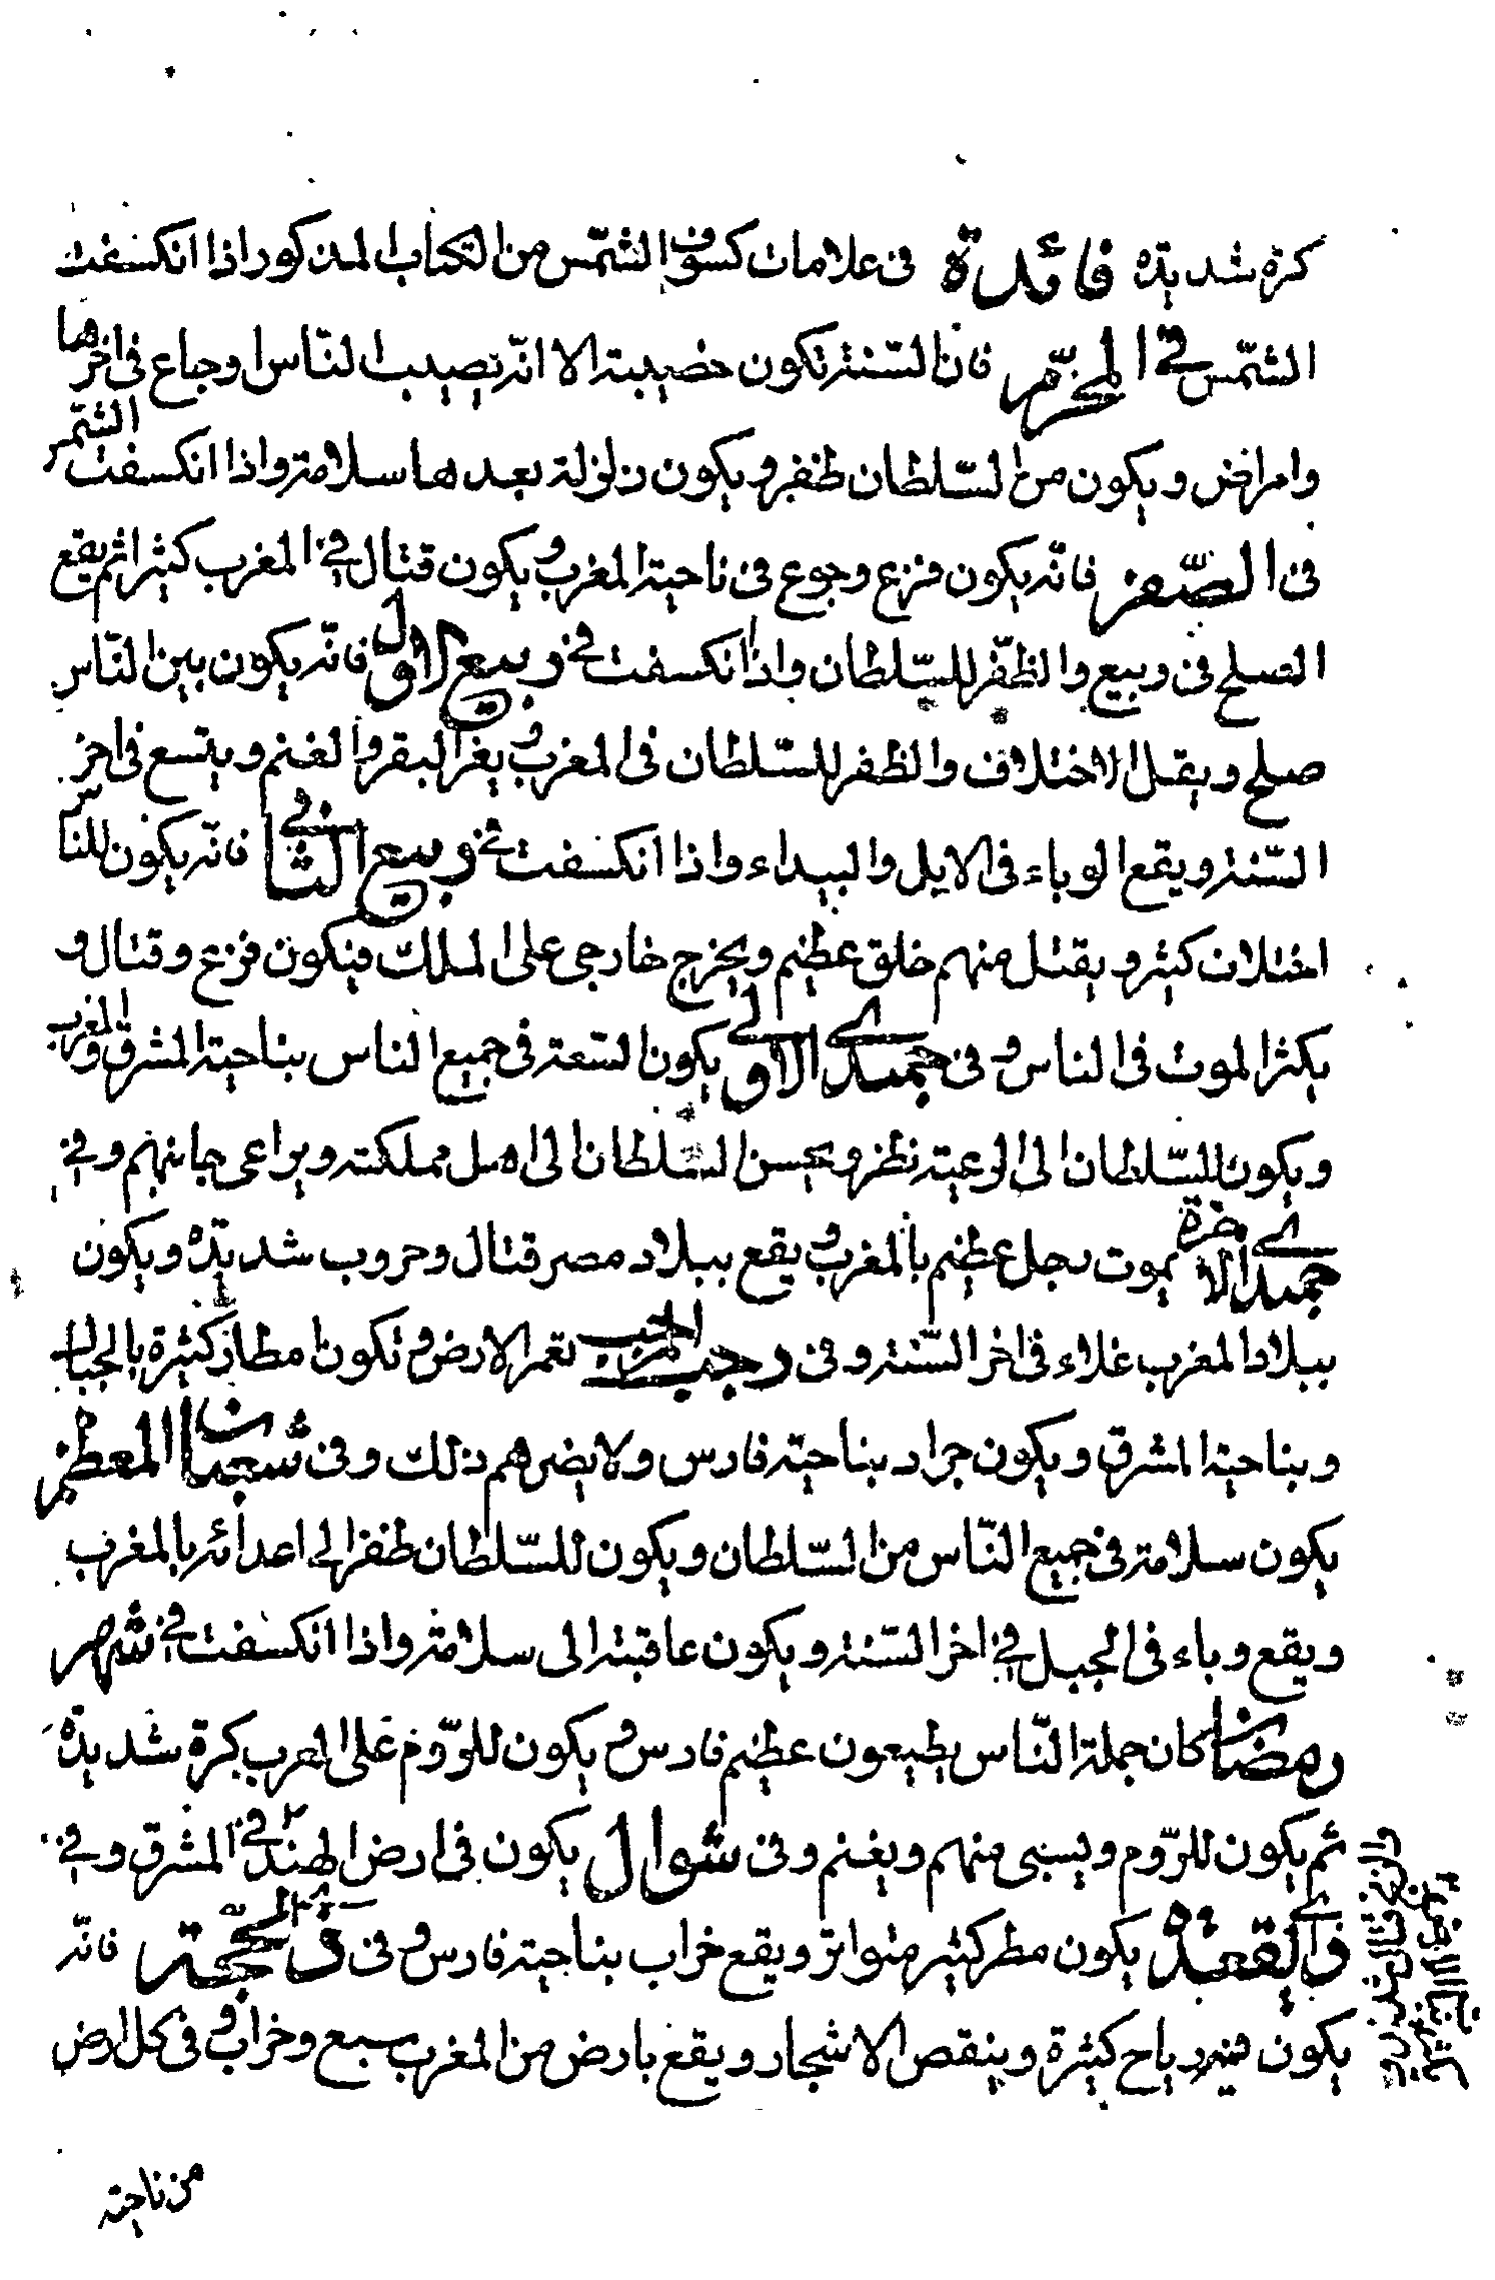 كرة شديدة فائدة فى علامات كسوف الشمّس من الكتاب المذكور اذا انكسفت
الشمّس فى المحرّم فان السّنة تكون خصيبة الا انّه يصيب النّاس اوجاع فى اخرها
وامراض ويكون من السّلطان ظفر ويكون زلزلة بعدها سلامة واذا انكسفت الشمّس
فى الصّفر فانّه يكون فزع وجوع فى ناحية المغرب ويكون قتال فى المغرب كثيرا ثم يقع
الصلح فى ربيع والظّفر للسّلطان واذا انكسفت فى ربيع الاول فانّه يكون بين النّاس
صلح ويقل الاختلاف والظفر للسّلطان فى المغرب ويغر البقر والغنم ويتسع فى اخر
السّنة ويقع الوباء فى الابل والبيداء واذا انكسفت فى ربيع الثانى فانّه يكون للناس
اختلاف كثير ويقتل منهم خلق عظيم ويخرج خارجى على الملك فيكون فزع وقتال و
يكثر الموت فى الناس وفى جميدى الاولى يكون السّعة فى جميع الناس بناحية المشرق والمغرب
ويكون للسّلطان الى الرعية نظر ويحسن السّلطان الى اهل مملكته ويراعى جانبهم وفى
جميدى الاخرة يموت رجل عظيم بالمغرب ويقع ببلاد مصر قتال وحروب شديدة ويكون
ببلاد المغرب غلاء فى اخر السّنة وفى رجب المرجب تعمر الارض وتكون امطار كثيرة بالجبال
وبناحية المشرق ويكون جراد بناحية فارس ولا يضرهم ذلك وفى شعبان المعظم
يكون سلامة فى جميع النّاس من السّلطان ويكون للسّلطان ظفر الى اعدائه بالمغرب
ويقع وباء فى الجبل فى اخر السّنة ويكون عاقبته الى سلامة واذا انكسفت فى شهر
رمضان كان جملة النّاس يطيعون عظيم فارس ويكون للرّوم على العرب كرة شديدة
ثم يكون للرّوم ويسبى منهم ويغنم وفى شوال يكون فى ارض الهند فى المشرق وفى
ذى القعدة يكون مطر كثير متواتر ويقع خراب بناحية فارس وفى ذى الحجّة فانّه
يكون فيه رياح كثيرة وينقص الاشجار ويقع بارض من المغرب سبع وخراب وفى كل ارض
من ناحية